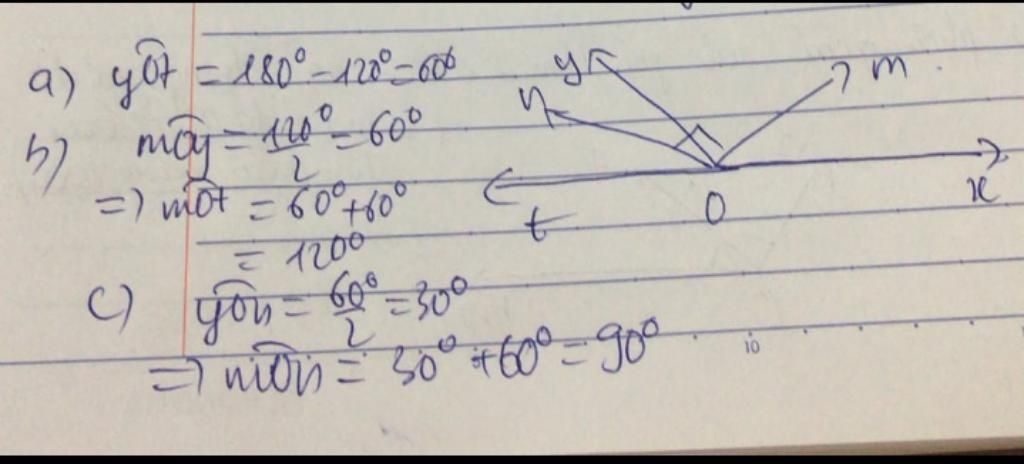 a) yOt = 180° - 120° = 60°
b) mOy = 120°/2 = 60°
=> mOt = 60° + 60°
= 120°
c) yOn = 60°/2 = 30°
=> mOn = 30° + 60° = 90°
y
m
n
t
O
x
10